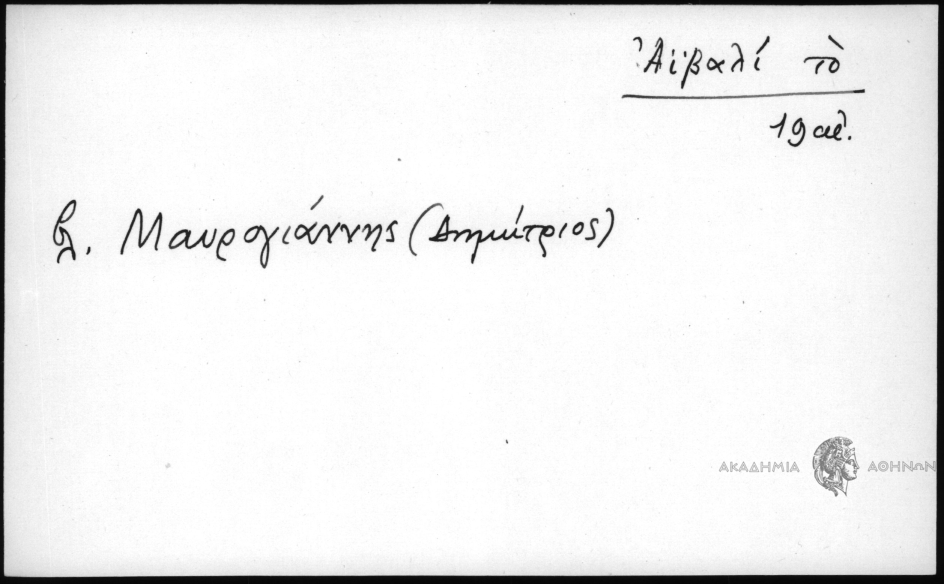 Ἀϊβαλί τὸ
19 αἰ.
βλ. Μαυρογιάννης (Δημήτριος)
ΑΚΑΔΗΜΙΑ ΑΘΗΝΩΝ